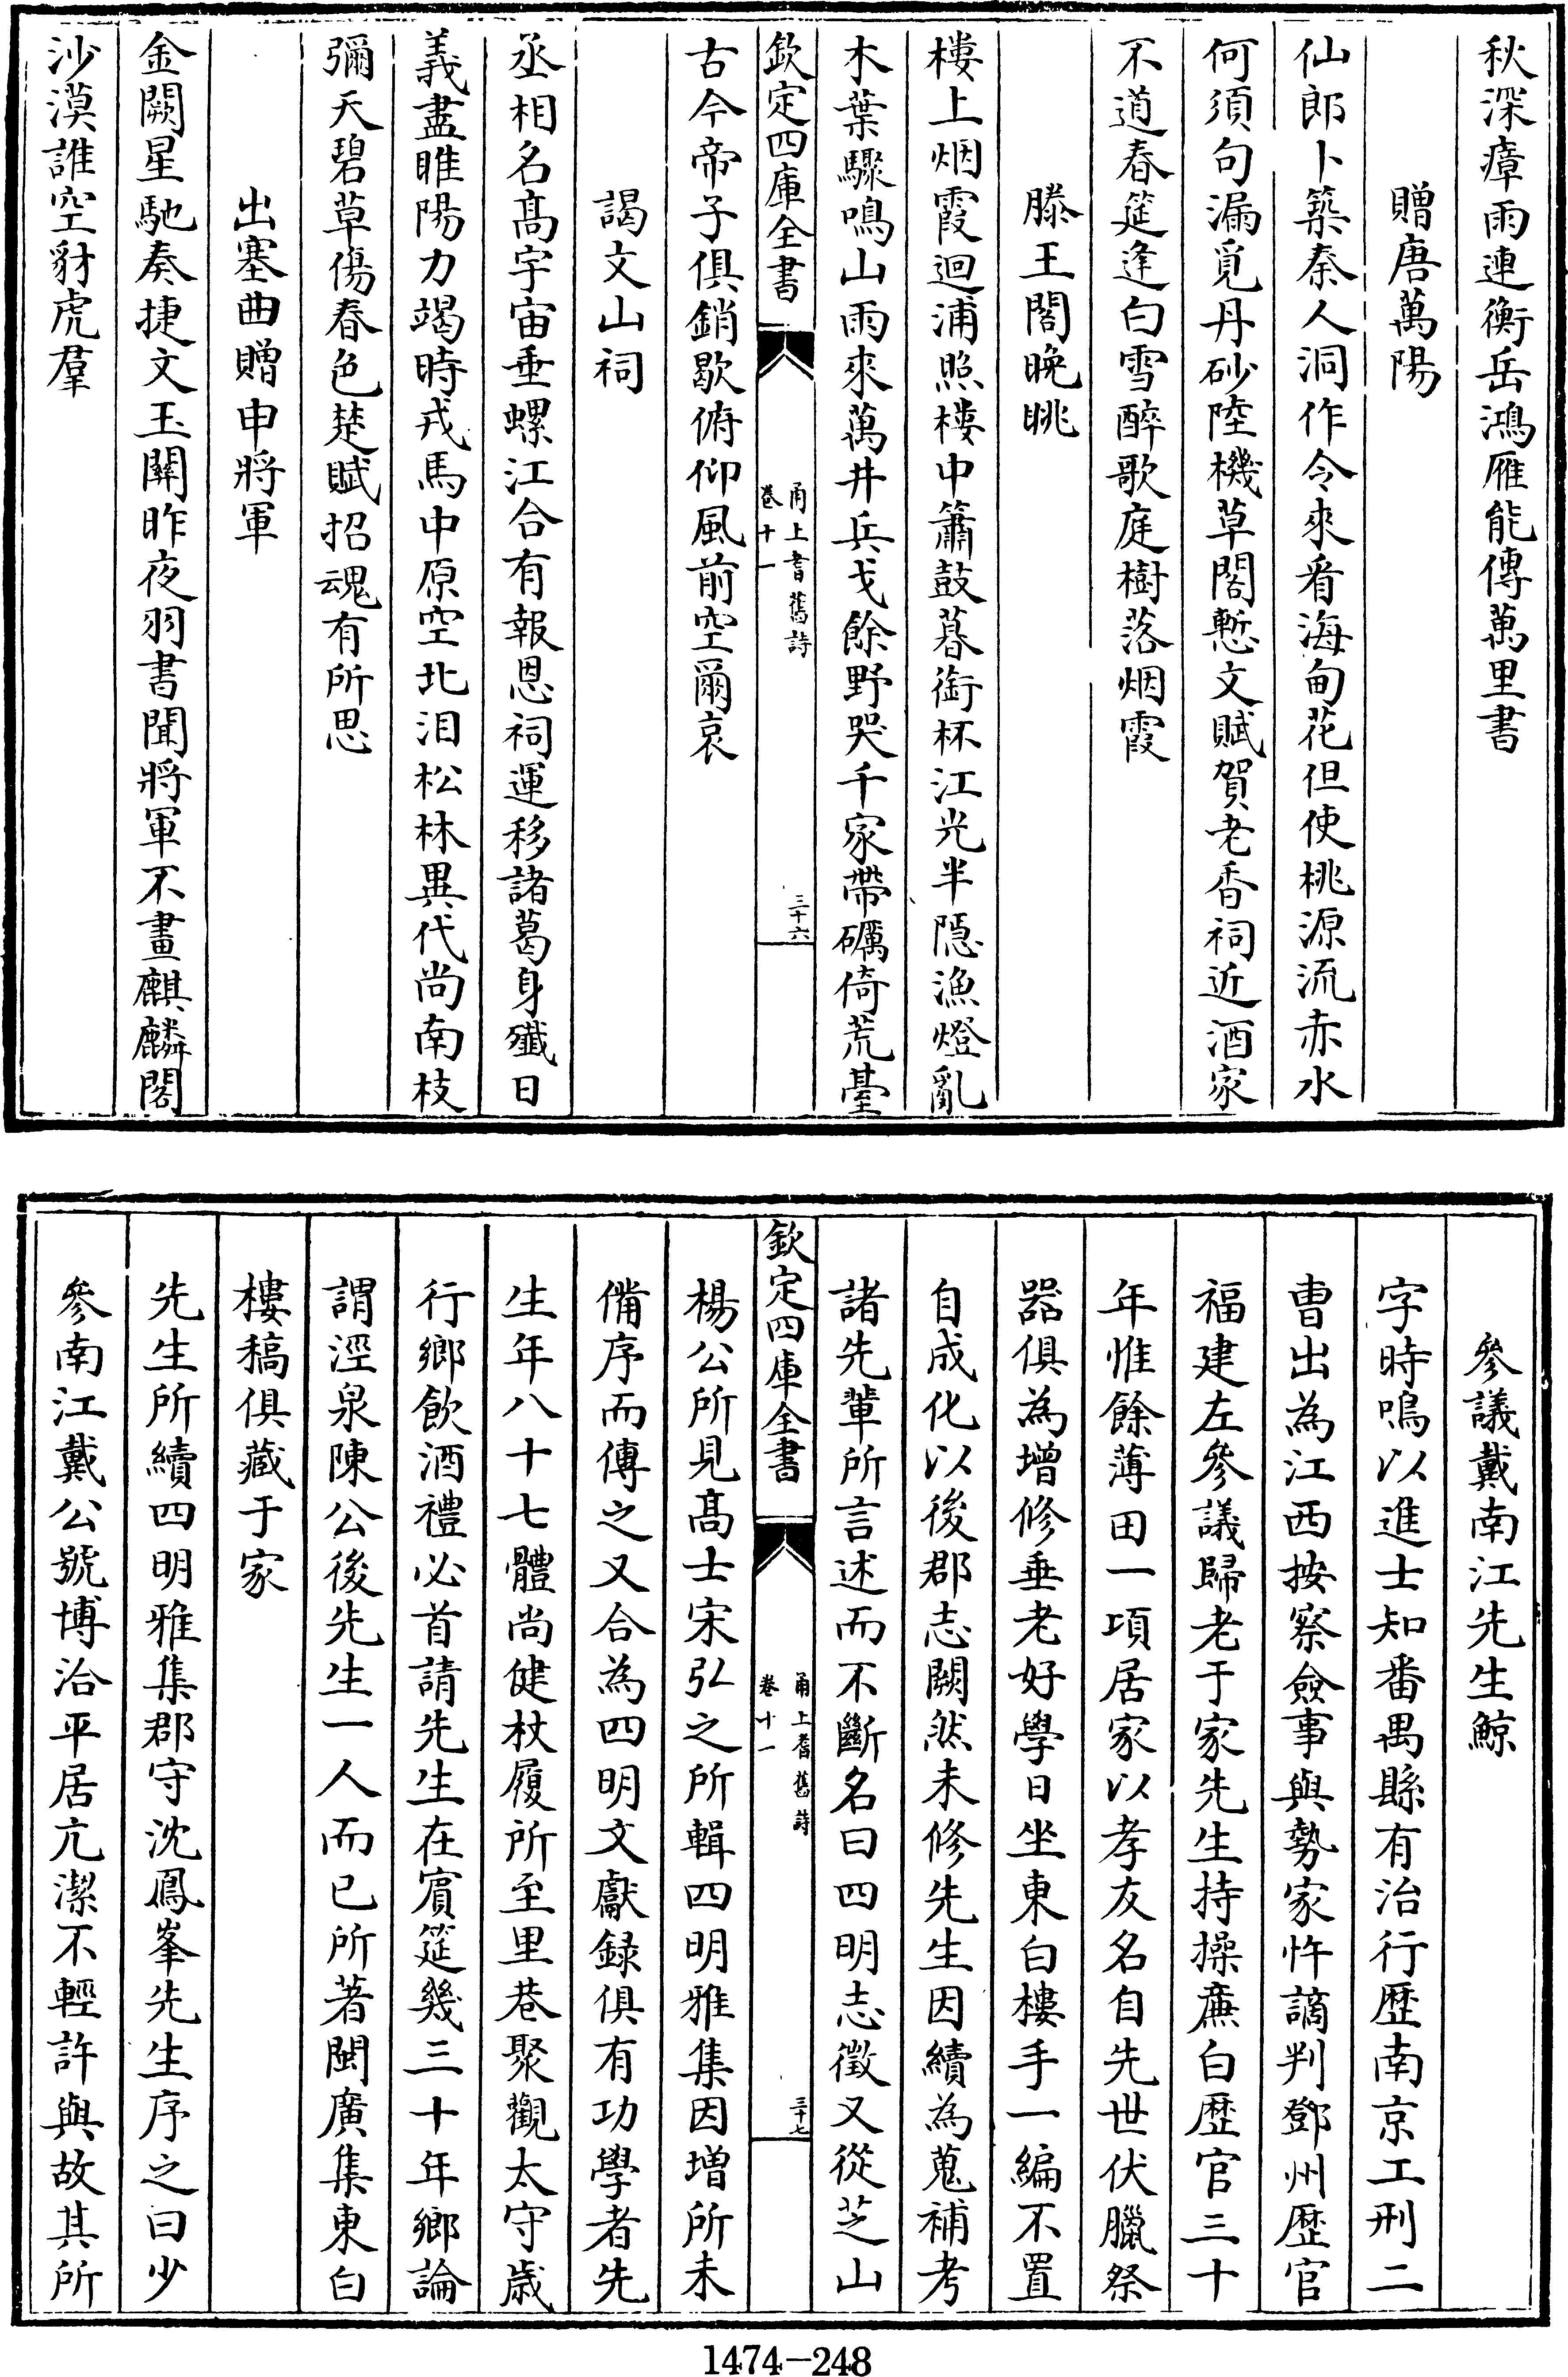 秋深瘴雨連衡岳鴻雁能傳萬里書
贈唐萬陽
仙郎卜築秦人洞作令來看海甸花但使桃源流赤水
何須句漏覓丹砂陸機草閣慙文賦賀老香祠近酒家
不道春筵逢白雪醉歌庭樹落烟霞
滕王閣晚眺
樓上烟霞迴浦照樓中簫鼓暮銜杯江光半隱漁燈亂
木葉驟鳴山雨來萬井兵戈餘野哭千家帶礪倚荒臺
欽定四庫全書
甬上耆舊詩
卷十一
三十六
古今帝子俱銷歇俯仰風前空爾哀
謁文山祠
丞相名髙宇宙垂螺江合有報恩祠運移諸葛身殱日
義盡睢陽力竭時戎馬中原空北泪松林異代尚南枝
彌天碧草傷春色楚賦招魂有所思
出塞曲贈申將軍
金闕星馳奏捷文玉關昨夜羽書聞將軍不畫麒麟閣
沙漠誰空豺虎羣
參議戴南江先生鯨
字時鳴以進士知番禺縣有治行歷南京工刑二
曹出為江西按察僉事與勢家忤謫判鄧州歷官
福建左參議歸老于家先生持操廉白歷官三十
年惟餘薄田一項居家以孝友名自先世伏臘祭
器俱為增修垂老好學日坐東白樓手一編不置
自成化以後郡志闕然未修先生因續為蒐補考
諸先輩所言述而不斷名曰四明志徵又從芝山
欽定四庫全書
甬上耆舊詩
卷十一
三十七
楊公所見髙士宋弘之所輯四明雅集因增所未
備序而傳之又合為四明文獻録俱有功學者先
生年八十七體尚健杖履所至里巷聚觀太守歲
行鄉飲酒禮必首請先生在賓筵幾三十年鄉論
謂涇泉陳公後先生一人而已所著閩廣集東白
樓稿俱藏于家
先生所續四明雅集郡守沈鳳峯先生序之曰少
參南江戴公號博洽平居亢潔不輕許與故其所
1474-248